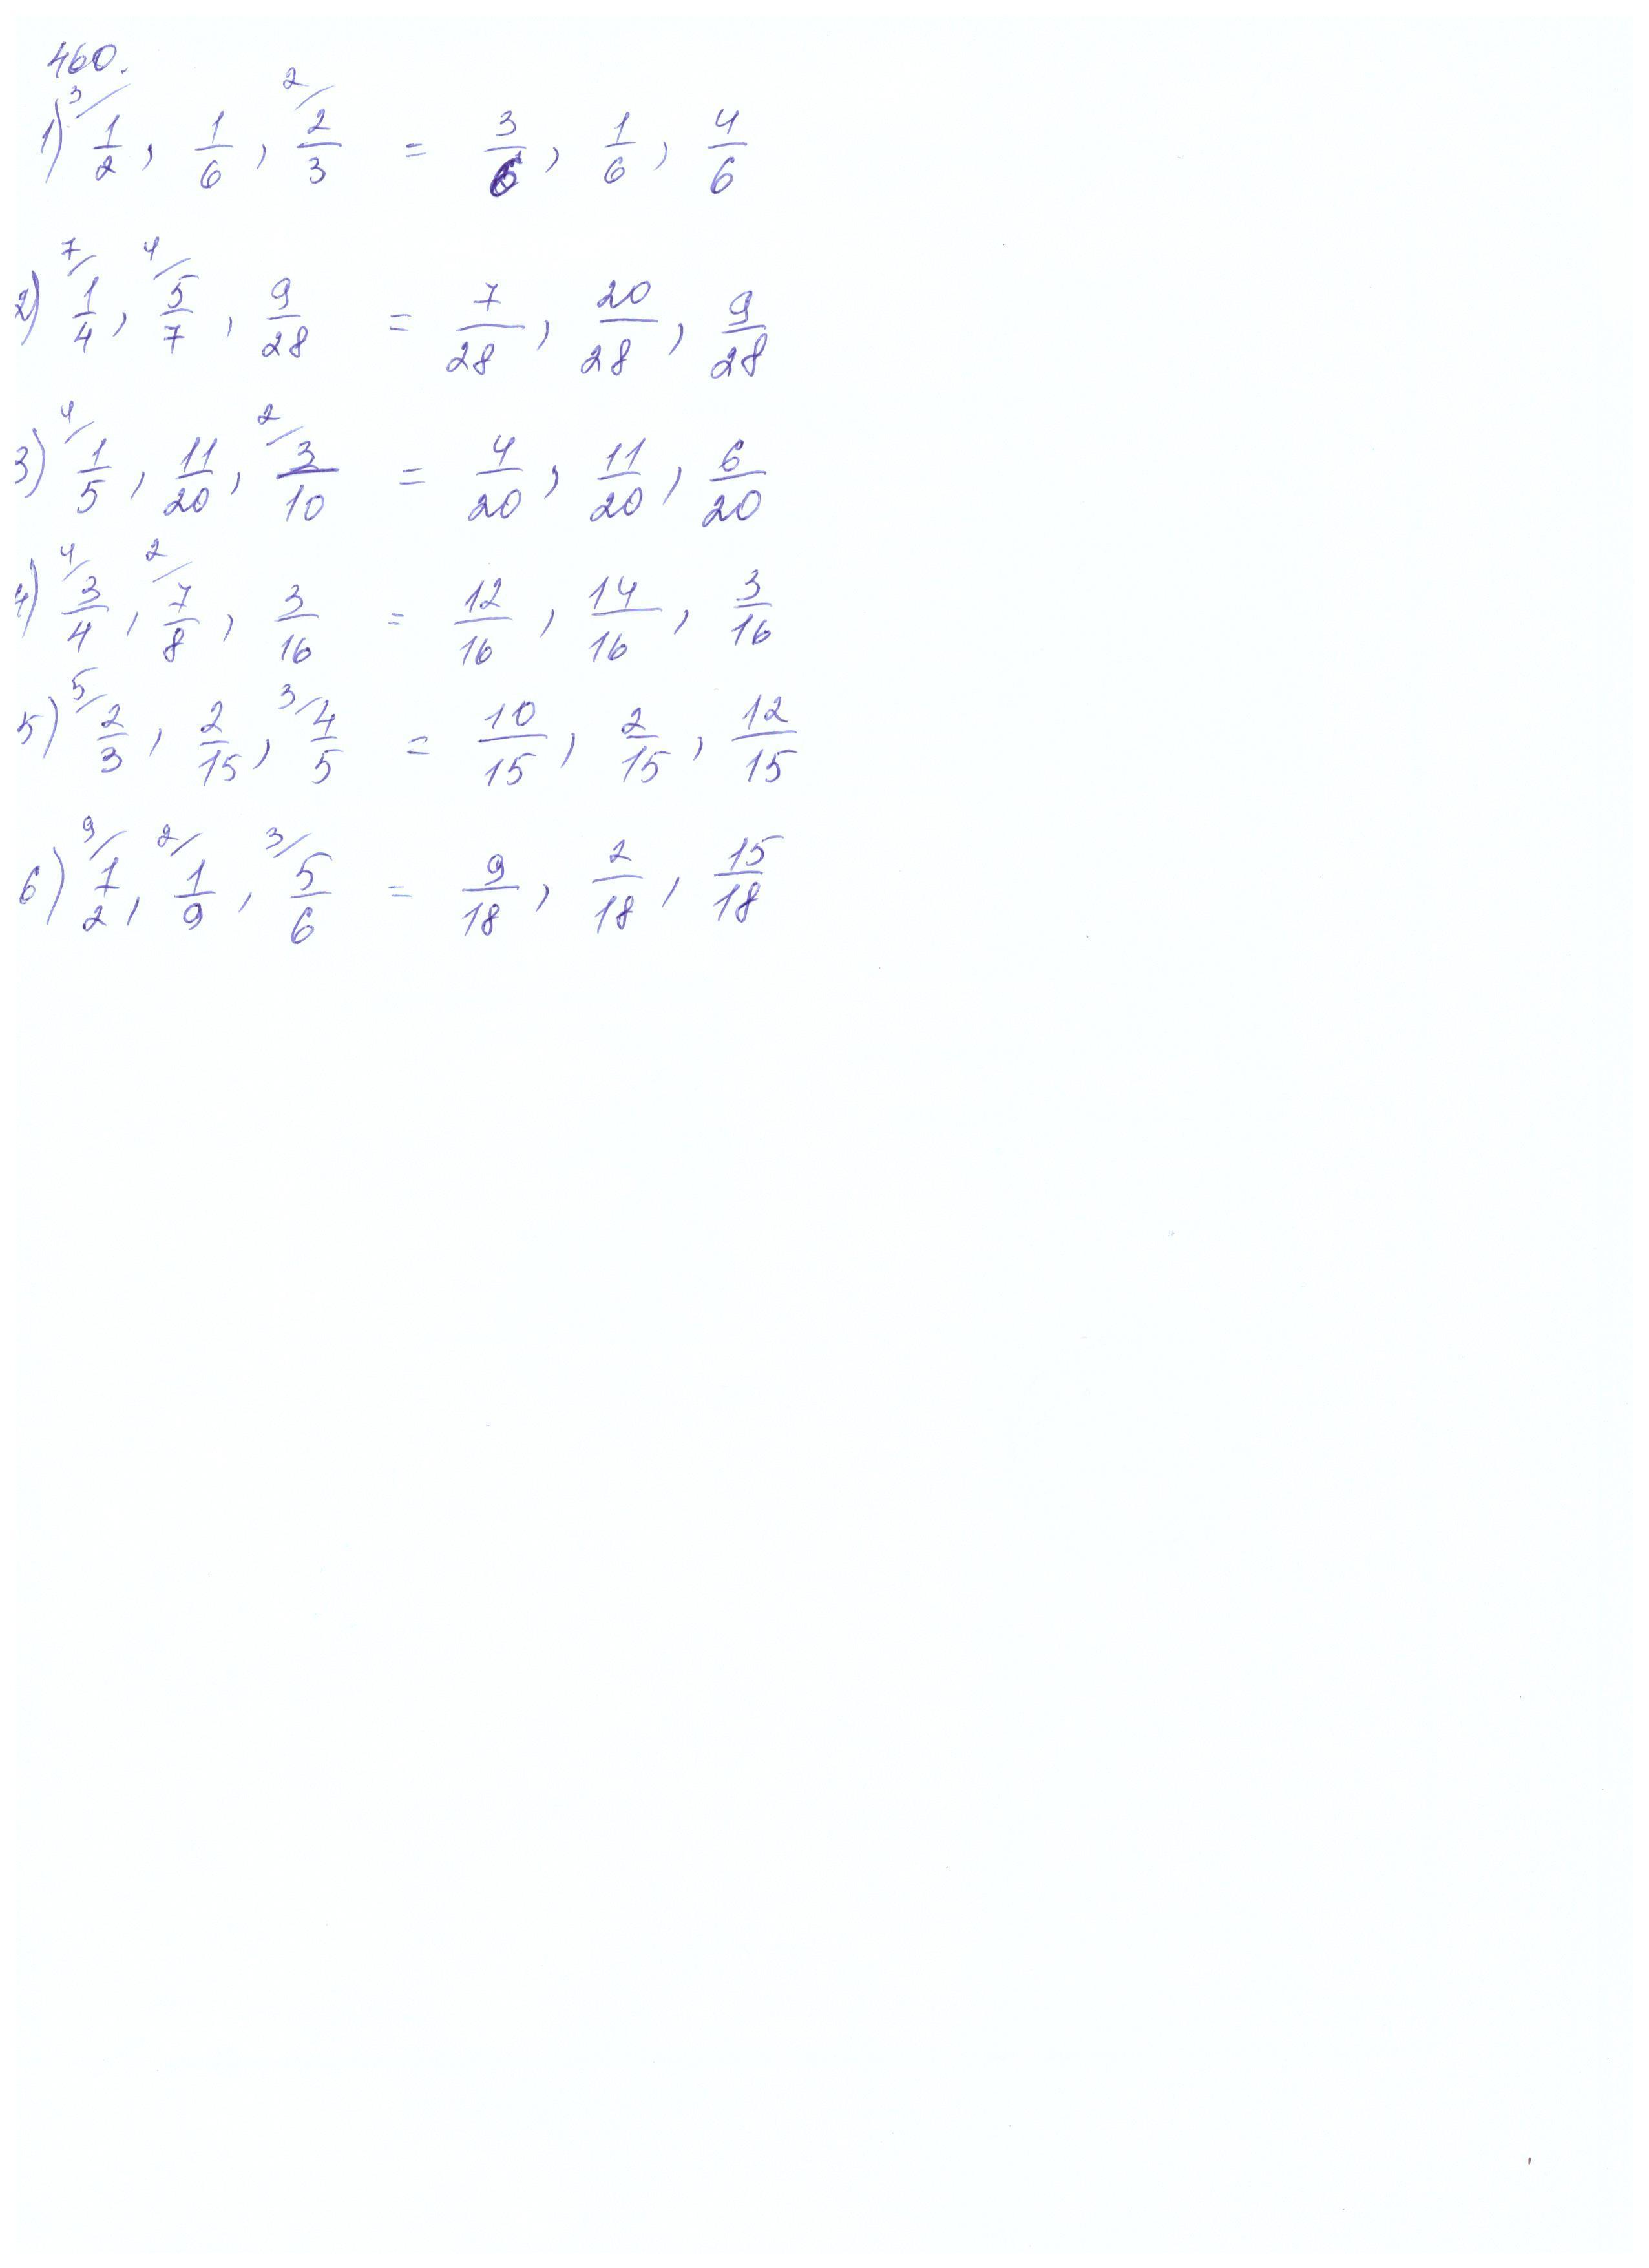 460.
1) 3/ 1/2, 1/6, 2/ 2/3 = 3/6, 1/6, 4/6
2) 7/ 1/4, 4/ 5/7, 9/28 = 7/28, 20/28, 9/28
3) 4/ 1/5, 11/20, 2/ 3/10 = 4/20, 11/20, 6/20
4) 4/ 3/4, 2/ 7/8, 3/16 = 12/16, 14/16, 3/16
5) 5/ 2/3, 2/15, 3/ 4/5 = 10/15, 2/15, 12/15
6) 9/ 1/2, 2/ 1/9, 3/ 5/6 = 9/18, 2/18, 15/18